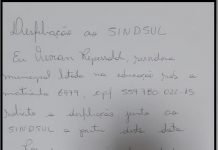 Desfiliação ao SINDSUL
Eu Vivian Reparold, servidora
municipal lotada na educação sob a
matrícula 6979, cpf 559.780.022-15
solicito a desfiliação junto ao
SINDSUL a partir desta data